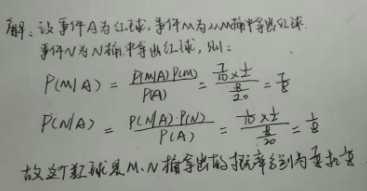 解：设事件A为红球，事件M为从M箱中拿出红球
事件N为N箱中拿出红球，则：
P(M|A) = P(M|A)P(M) / P(A) = (7/10 × 1/2) / (8/20) = 7/8
P(N|A) = P(N|A)·P(N) / P(A) = (1/10 × 1/2) / (8/20) = 1/8
故这个红球是M、N箱拿出的概率分别为